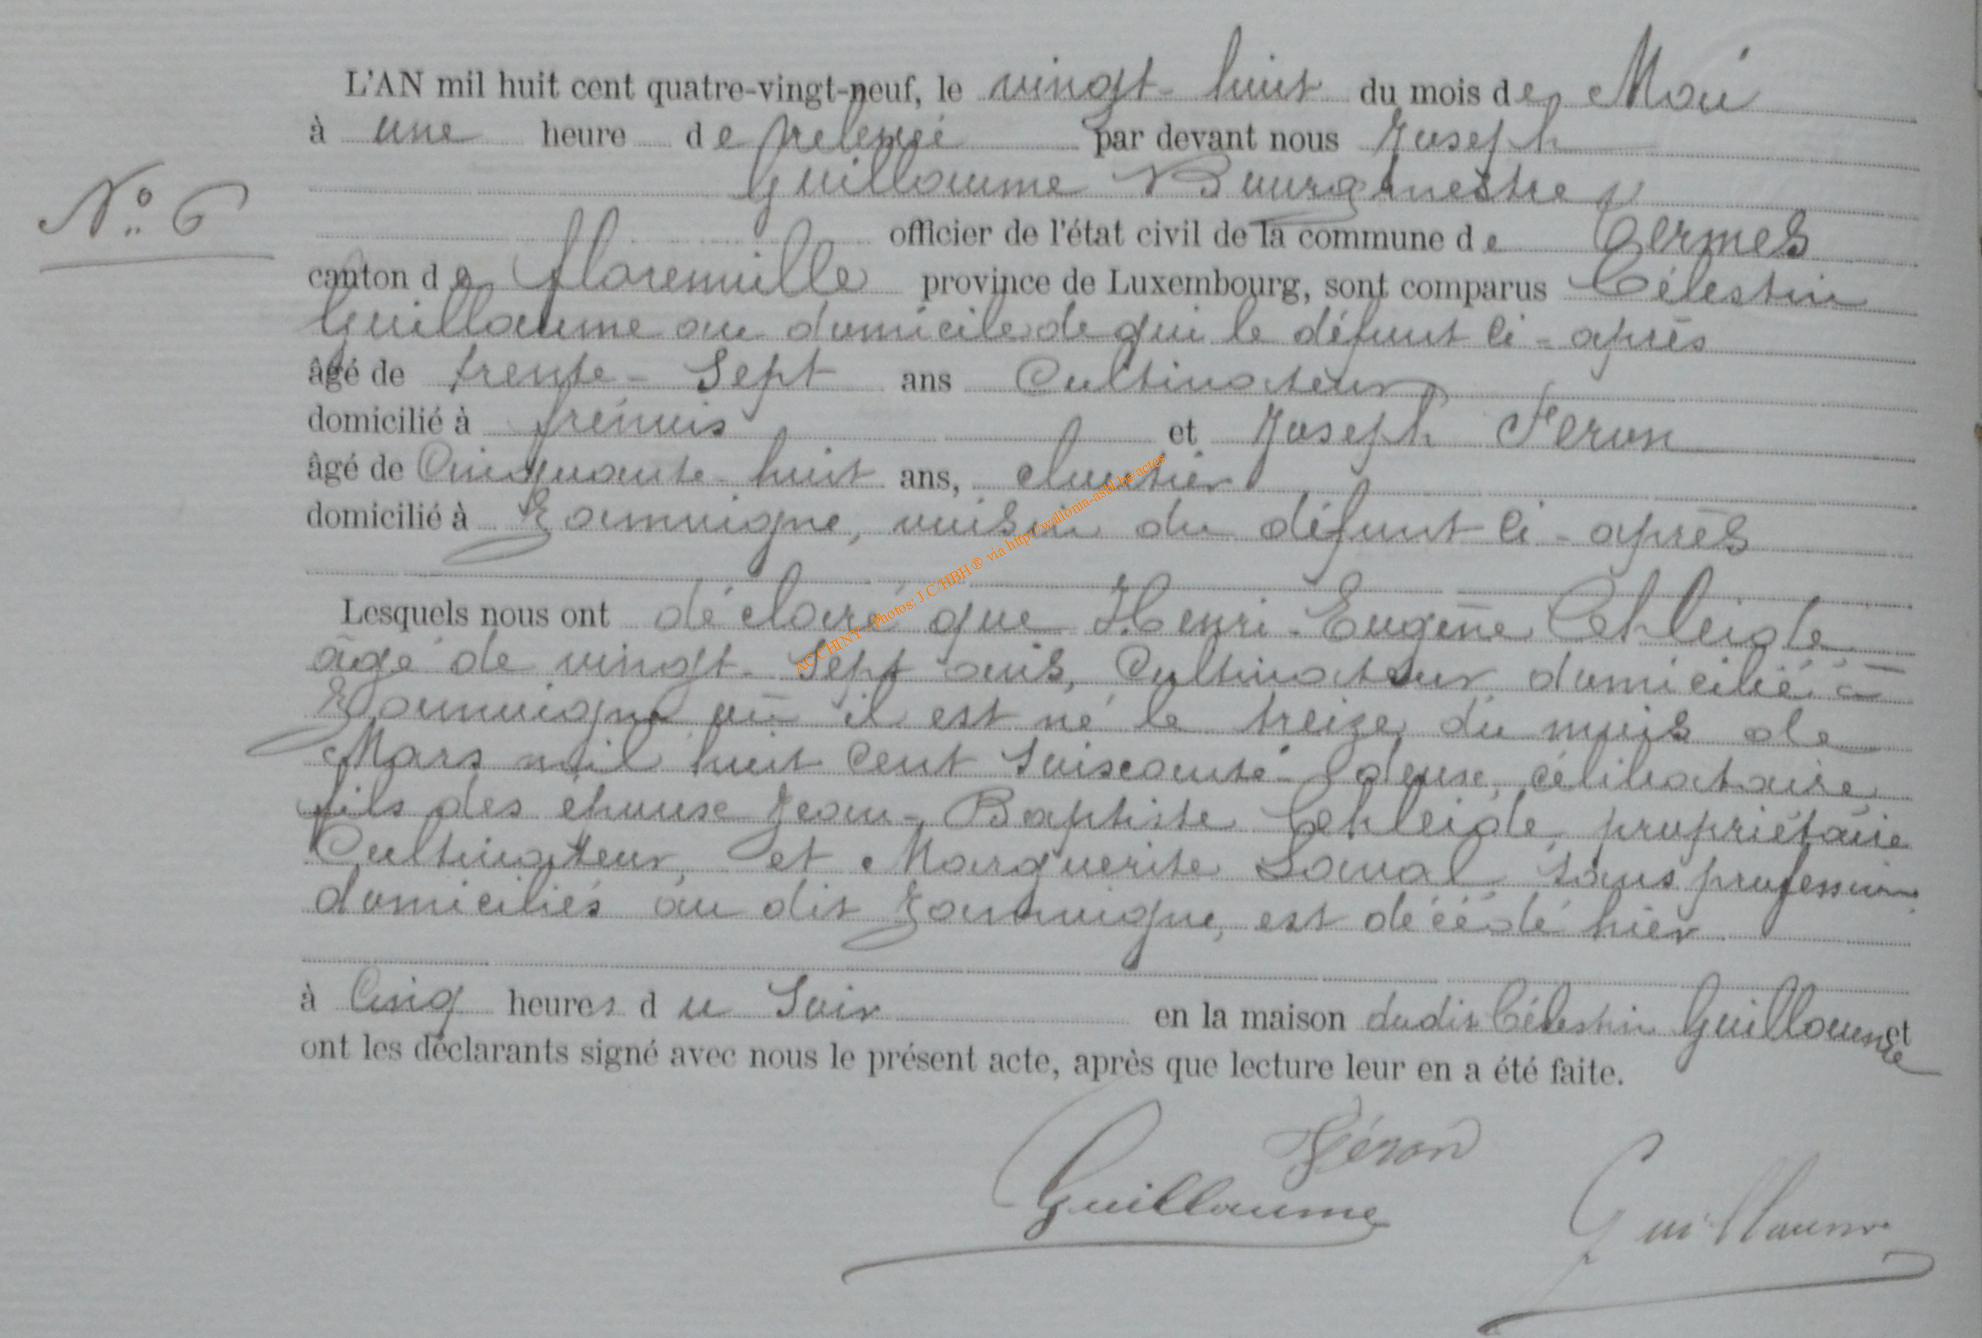 L'AN mil huit cent quatre-vingt-neuf, le vingt-huit du mois de Mai
à une heure de relevée par devant nous Joseph
N° 6
Guillaume Bourgmestre
officier de l'état civil de la commune de Termes
canton de florenville province de Luxembourg, sont comparus Célestin
Guillaume au domicile de qui le défunt ci-après
âgé de trente-Sept ans Cultivateur
domicilié à frénois et Joseph Feron
âgé de Cinquante-huit ans,
domicilié à Jamoigne, voisin du défunt ci-après
Lesquels nous ont déclaré que Henri-Eugène Cehleide
âgé de vingt-Sept ans, Cultivateur domicilié à
Jamoigne où il est né le treize du mois de
Mars mil huit cent Soixante-deux, célibataire
fils des époux Jean-Baptiste Cehleide, propriétaire
Cultivateur, et Marguerite Lawal Sans profession
domiciliés au dit Jamoigne, est décédé hier
à Cinq heures du Soir en la maison dudit Célestin Guillaume et
ont les déclarants signé avec nous le présent acte, après que lecture leur en a été faite.
Féron
Guillaume Guillaume
ACCHINY - Photos: J.C. HBH ® via http://wallonia-asbl.be/actes